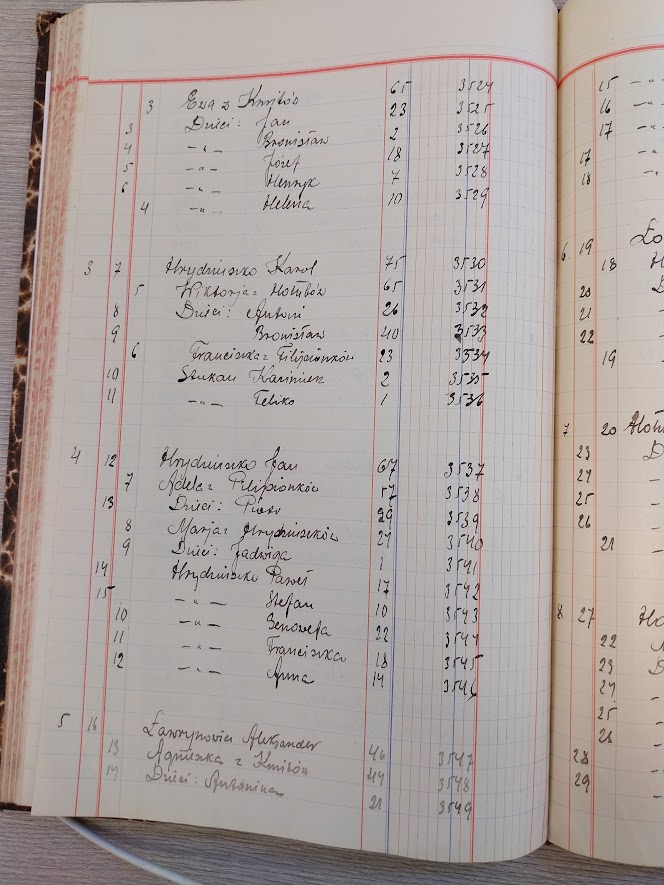 3 Ewa z Kmitów 65 3524
3 Dzieci: Jan 23 3525
4 -„- Bronisław 2 3526
5 -„- Józef 18 3527
6 -„- Henryk 7 3528
4 -„- Helena 10 3529
3 7 Hrydziuszko Karol 75 3530
5 Wiktorja z Hołubów 65 3531
8 Dzieci: Antoni 26 3532
9 Bronisław 40 3533
6 Franciszka z Filipionków 23 3534
10 Kazimierz 2 3535
11 -„- Feliks 1 3536
4 12 Hrydziuszko Jan 67 3537
7 Adela z Filipionków 57 3538
13 Dzieci: Piotr 29 3539
8 Marja z Hrydziuszków 27 3540
9 Dzieci: Jadwiga 1 3541
14 Hrydziuszko Paweł 17 3542
15 -„- Stefan 10 3543
10 -„- Genowefa 22 3544
11 -„- Franciszka 18 3545
12 -„- Anna 14 3546
5 16 Ławrynowicz Aleksander 46 3547
13 Agnieszka z Kmitów 44 3548
14 Dzieci: Antonina 21 3549
15 -„-
16 -„-
17 -„-
17
18
6 19
18
20
21
22
19
7 20
23
24
25
26
21
8 27
22
23
24
25
26
28
29